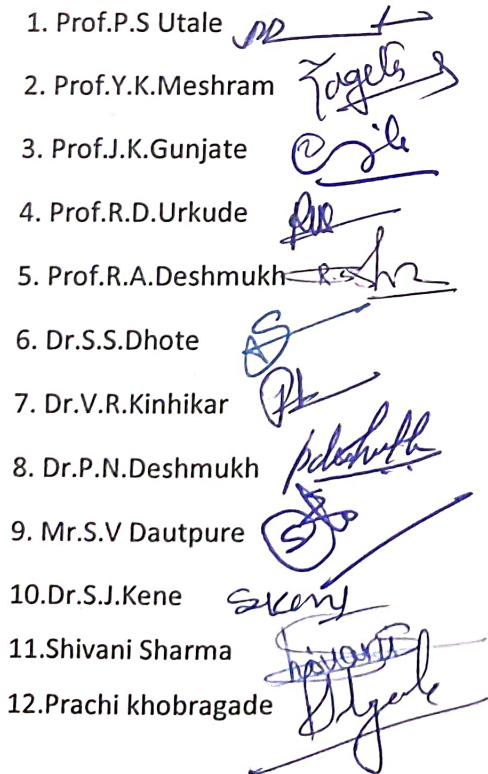 1. Prof.P.S Utale
2. Prof.Y.K.Meshram
3. Prof.J.K.Gunjate
4. Prof.R.D.Urkude
5. Prof.R.A.Deshmukh
6. Dr.S.S.Dhote
7. Dr.V.R.Kinhikar
8. Dr.P.N.Deshmukh pdeshmukh
9. Mr.S.V Dautpure
10.Dr.S.J.Kene SKene
11.Shivani Sharma Shivani
12.Prachi khobragade